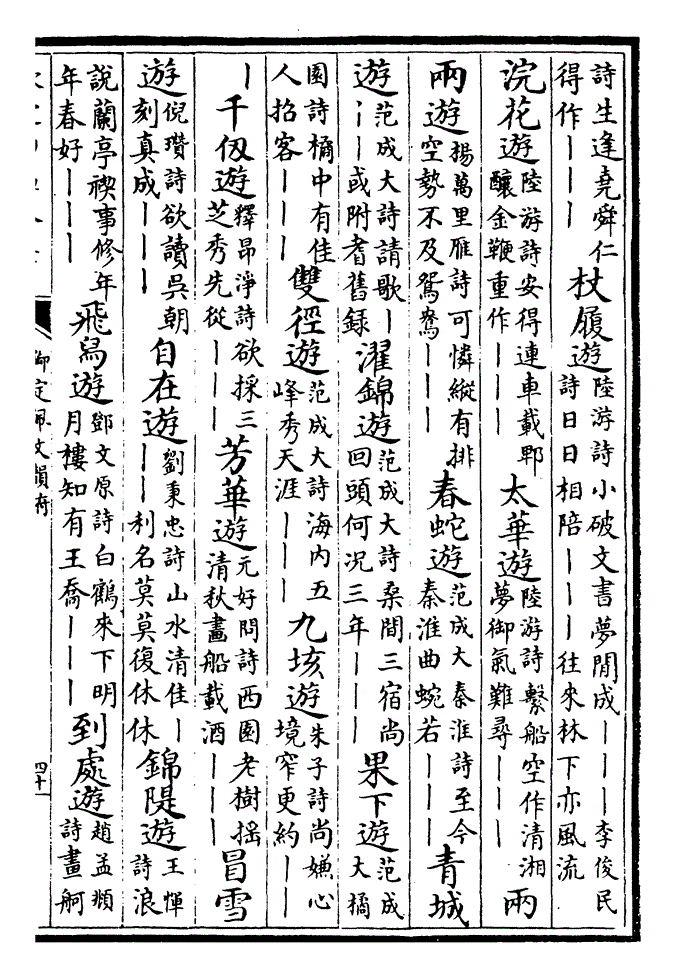 詩生逢堯舜仁得作丨丨丨杖履遊陸游詩小破文書夢閒成丨丨丨李俊民詩日日相陪丨丨丨往來林下亦風流
浣花遊陸游詩安得連車載郫釀金鞭重作丨丨丨太華遊陸游詩繫船空作清湘夢御氣難尋丨丨丨兩
兩遊楊萬里雁詩可憐縱有排空勢不及鴛鴦丨丨丨春蛇遊范成大秦淮詩至今秦淮曲蜿若丨丨丨青城
遊范成大詩請歌丨丨丨或附耆舊錄濯錦遊范成大詩桑間三宿尚回頭何況三年丨丨丨果下遊范成大橘
園詩橘中有佳人招客丨丨丨雙徑遊范成大詩海內五峰秀天涯丨丨丨九垓遊朱子詩尚嫌心境窄更約丨丨
丨千仭遊釋昂淨詩欲採三芝秀先從丨丨丨芳華遊元好問詩西園老樹搖清秋畫船載酒丨丨丨冒雪
遊倪瓚詩欲讀吳朝刻真成丨丨丨自在遊劉秉忠詩山水清佳丨丨丨利名莫莫復休休錦隄遊王惲詩浪
說蘭亭禊事修年年春好丨丨丨飛舄遊鄧文原詩白鶴來下明月樓知有王喬丨丨丨到處遊趙孟頫詩畫舸
御定佩文韻府
四十一